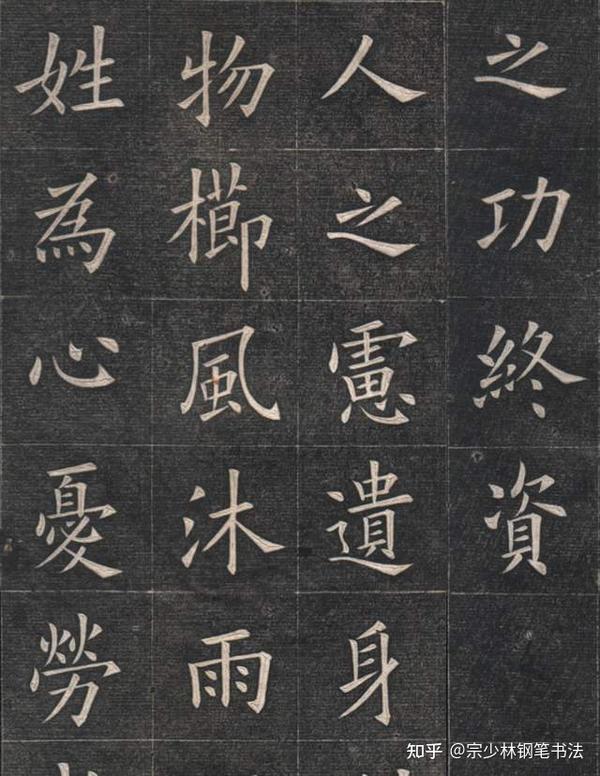 之功終資
人之慮遺身
物櫛風沐雨
姓為心憂勞
知乎 @宗少林钢笔书法